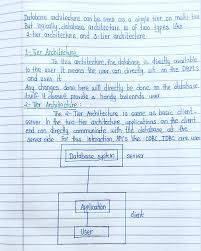 Database architecture can be seen as a single tier or multi tier
But logically, database architecture is of two types like
2-tier architecture and 3-tier architecture
1-Tier Architecture
To this architecture, the database is directly available
to the user. It means the user can directly sit on the DBMS
and uses it
Any changes done here will directly be done on the database
itself. It doesn't provide a handy tool for end user
2-Tier Architecture:
The 2-Tier Architecture is same as basic client-
server. In the two-tier architecture, applications on the client
end can directly communicate with the database at the
server side. For this interaction, API's like: ODBC, JDBC are used
Database system
server
Application
client
User